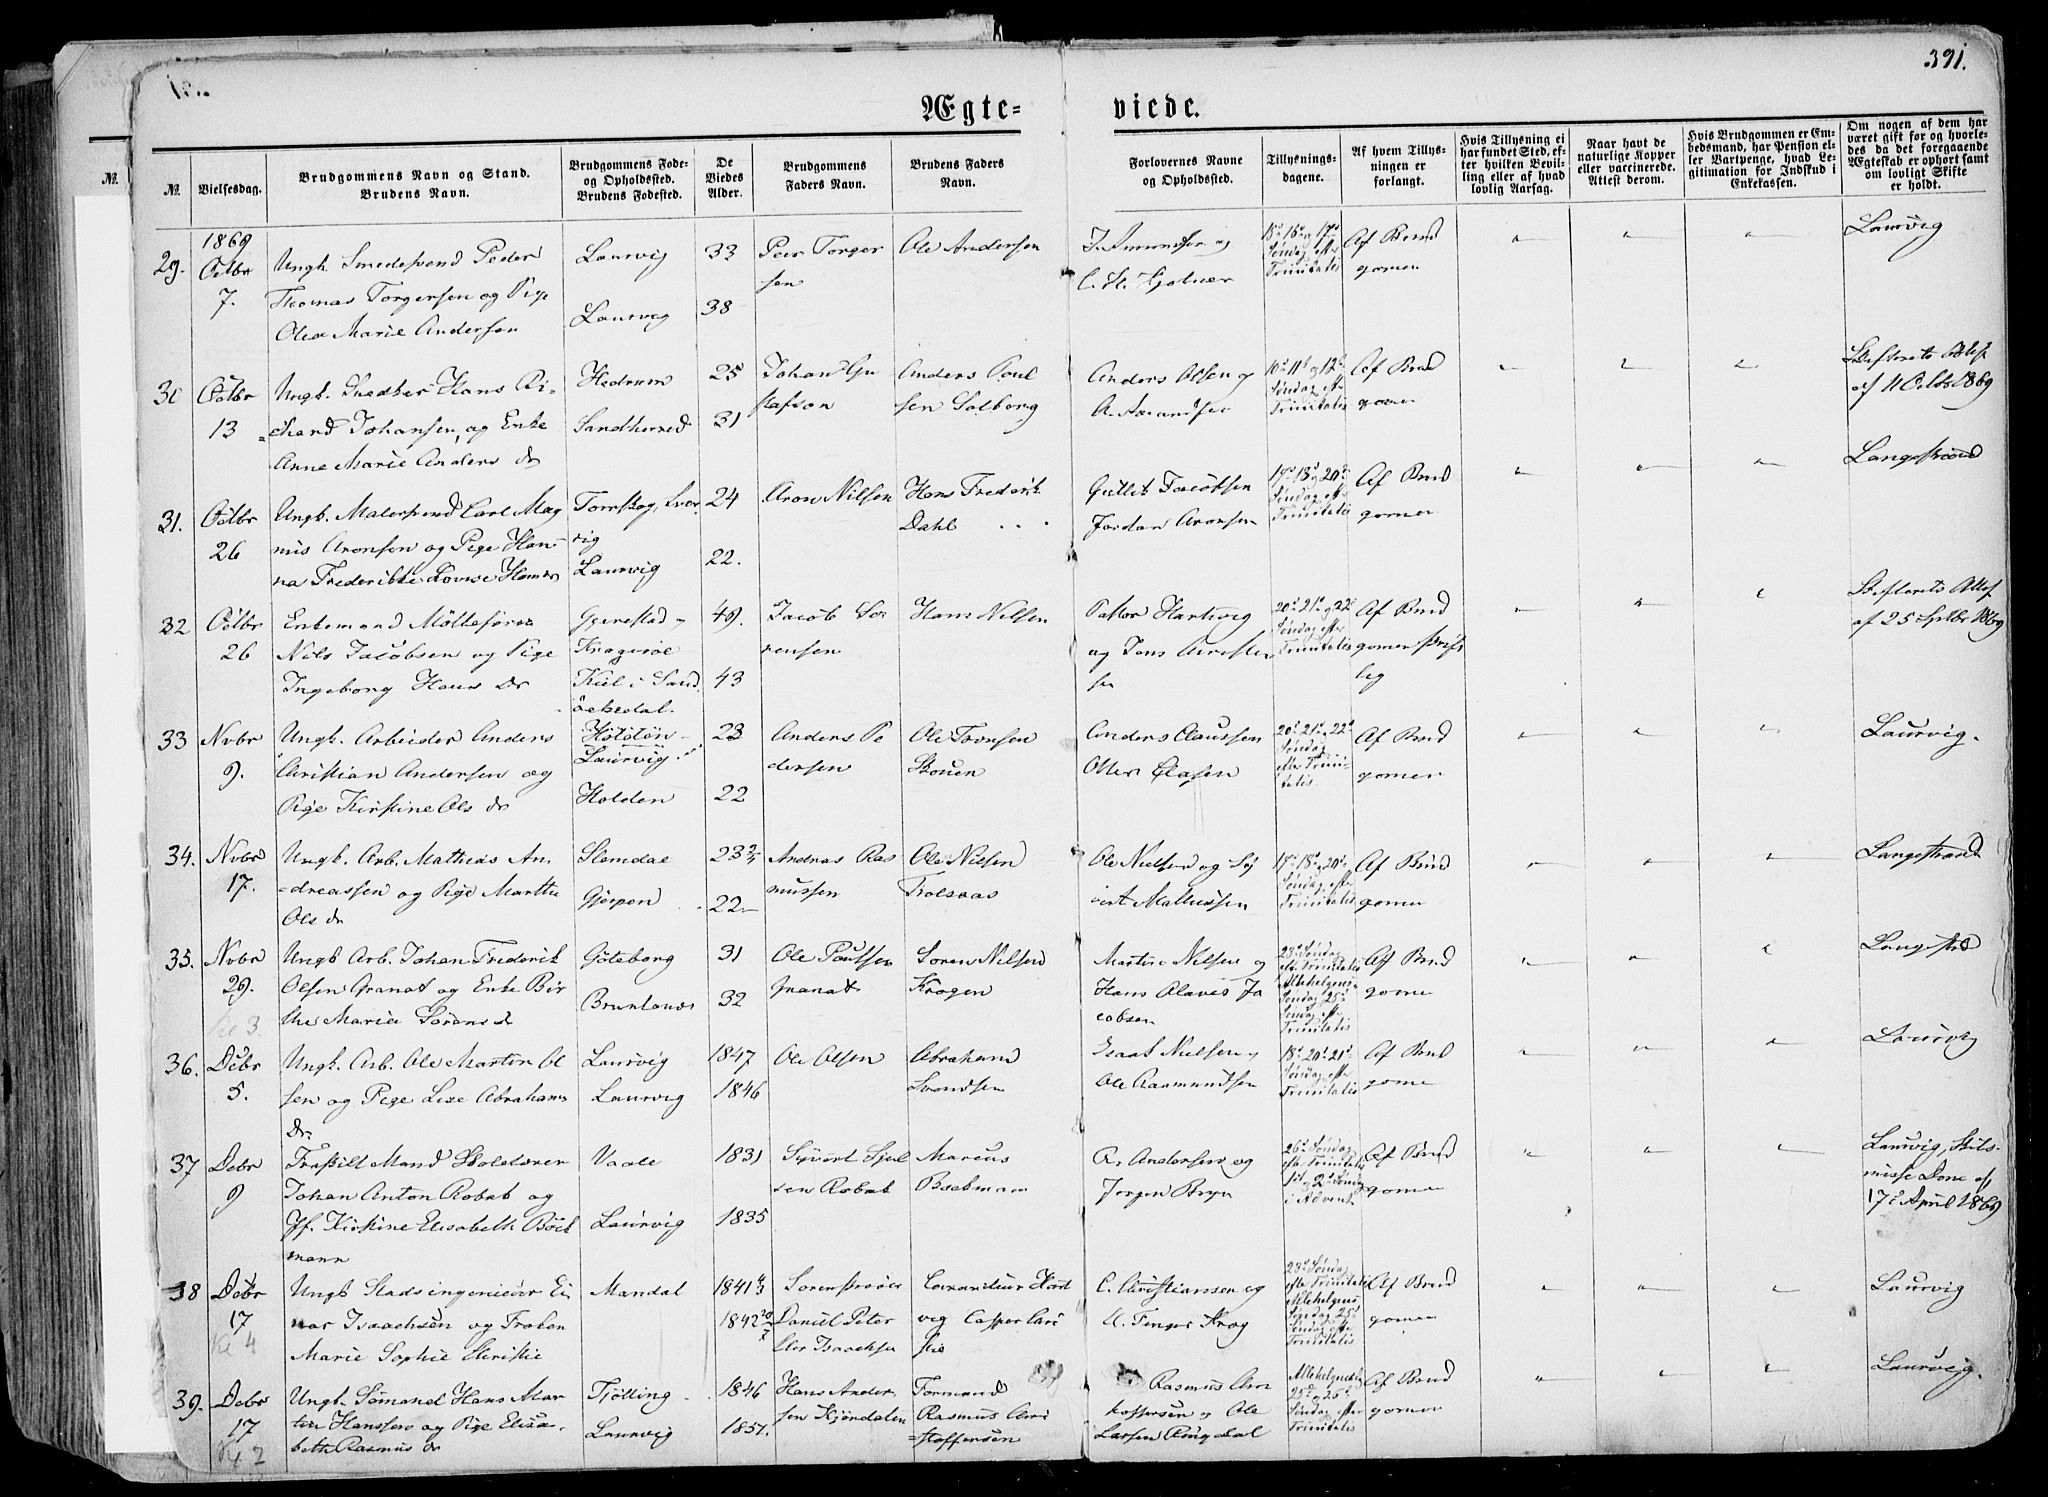 391.
Ægte=
viede.
№.
№.
Vielsesdag.
Brudgommens Navn og Stand.
Brudens Navn.
Brudgommens Føde-
og Opholdssted.
Brudens Fødested.
De
Viedes
Alder.
Brudgommens
Faders Navn.
Brudens Faders
Navn.
Forlovernes Navne
og Opholdssted.
Tillysnings-
dagene.
Af hvem Tillys-
ningen er
forlangt.
Hvis Tillysning ei
har fundet Sted, ef-
ter hvilken Bevil-
ling eller af hvad
lovlig Aarsag.
Naar havt de
naturlige Kopper
eller vaccinerede.
Attest derom.
Hvis Brudgommen er Em-
bedsmand, har Pension el-
ler Vartpenge, hvad Le-
gitimation for Indskud i
Enkekassen.
Om nogen af dem har
været gift før og hvorle-
des da det foregaaende
Ægteskab er ophørt samt
om lovligt Skifte
er holdt.
1869
29. Octbr
7.
Ungk. Smedesvend Peder
Thomas Torgersen og Pige
Olea Marie Andersen
Laurvig
Laurvig
33
38
Peer Torger
sen
Ole Andersen
J. Amundsen og
18d 16d og 17de
Søndag efter
Trinitatis
Af Brud
gomen
Laurvig
30 Octbr
13
Ungk. Hans Ri-
chard Johansen, og Enke
Anne Marie Anders Dr
Hedrum
Sandherred
25
31
Johan Gu
stafson
Anders Poul
sen Solberg
Anders Olsen og
A. Amundsen
10d 11t og 12te
Søndag efter
Trinitatis
Af Brud
gomen
Skifterets Attest
af 11 Octbr 1869
31. Octbr
26
Ungk. Malersvend Carl Mag
nus Aronsen og Pige Han-
na Frederikke Lovise Hans Dr
Laurvig
24
22.
Aron Nilsen
Hans Frederik
Dahl
Gullik Jacobsen
Jordan Aronsen
17d 18d og 20de
Søndag efter
Trinitatis
Af Brud
gomen
Langestrand
32 Octbr
26
Enkemand
Nils Jacobsen og Pige
Ingeborg Hans Dr
Gjerestad
Kragerøe
Kiil i Sand
økedal.
49.
43
Jacob Sø
rensen
Hans Nilsen
Pastor Hartvig
og Jens
20d 21d og 22d
Søndag efter
Trinitatis
Af Brud
gomen
lig
Skifterets Attest
af 25 Septbr 1869
33 Nvbr
9.
Ungk. Arbeider Anders
Christian Andersen og
Pige Kirstine Ols Dr
Laurvig
Holden
23
22
Anders Pe
dersen
Ole Tovsen
Skouen
Anders Claussen
Otter Olafsen
20d 21d og 22d
Søndag
efter Trini-
tatis.
Af Brud
gomen
Laurvig.
34. Nvbr
17.
Ungk. Arb. Mathias An
dreassen og Pige Marthe
Ols Dr
Slemdal
Gjerpen
23
22
Andreas Ras
mussen
Ole Nilsen
Ole Nielsen og
Mathissen
17d 18d og 20d
Søndag efter
Trinitatis
Af Brud
gomen
Langestrand
35. Nvbr
29.
Ungk Arb. Johan Frederik
Olsen Granat og Enke Bir
the Marie Sørens Dr
Gøteborg
Brunlanes
31
32
Ole Poulsen
Granat
Søren Nilsen
Krogen
Martin Nilsen og
Hans Olaves Ja
cobsen
23d Søndag
eft. Trinitatis
Allehelgens
Søndag 25d
Søndag efter
Trinitatis
Af Brud
gomen
Langestrd
36. Debr
5.
Ungk. Arb. Ole Martin Ol
sen og Pige Lise Abrahams
Dr.
Laurvig
Laurvig
1847
1846
Ole Olsen
Abraham
Svendsen
Isaak Nielsen og
Ole Rasmundsen
18d 20d 21d
Søndag efter
Trinitatis
Af Brud
gomen
Laurvig
37 Debr
9
Fraskilt Mand Skolelærer
Johan Anton Robak og
Jf. Kirstine Elisabeth Böck
mann
Vaale
Laurvig
1831
1835
Marcus
R. Andersen og
Jørgen Bryn
26d Søndag
efter Trinitatis
og 2d Søndag
i Advent
Af Brud
gomen
Laurvig, Skils-
misse
17de April 1869
38 Debr
17
Ungk Stadsingenieur Ei
nar Isaachsen og Frøken
Marie Sophie Christie
Mandal
1841
1842
Daniel Peter
Isaachsen
vig Casper Chri
stie
C. Christiansen og
U. Finger Krog
23d Søndag
efter Trinitatis
Allehelgens
Søndag 25d
Søndag efter
Trinitatis
Af Brud
gomen
Laurvig
39. Debr
17
Ungk. Sømand Hans Mar
tin Hanssen og Pige Elisa-
beth Rasmus Dr
Tjølling
Laurvig
1846
1851.
Hans Ander
sen Kjøndalen
Formand
Rasmus Chri
stoffersen
Rasmus Chri
stoffersen og Ole
Larsen Ringdal
Allehelgensd
25d og 26d
Søndag efter
Trinitatis
Af Brud
gomen
Laurvig.